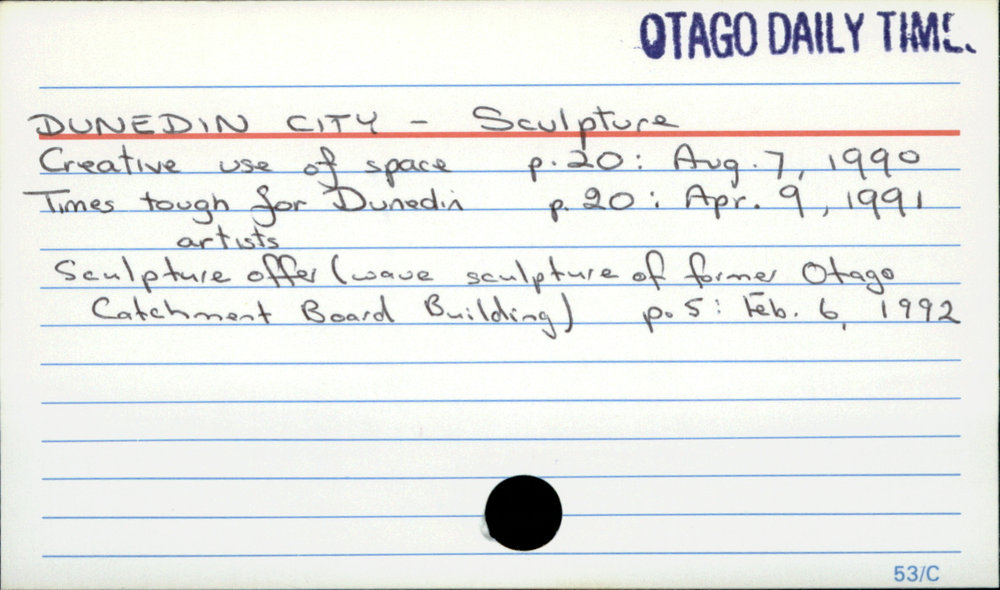 OTAGO DAILY TIMES.
DUNEDIN CITY - Sculpture
Creative use of space p. 20: Aug. 7, 1990
Times tough for Dunedin p. 20: Apr. 9, 1991
artists
Sculpture offer (wave sculpture of former Otago
Catchment Board Building) p. 5: Feb. 6, 1992
53/C